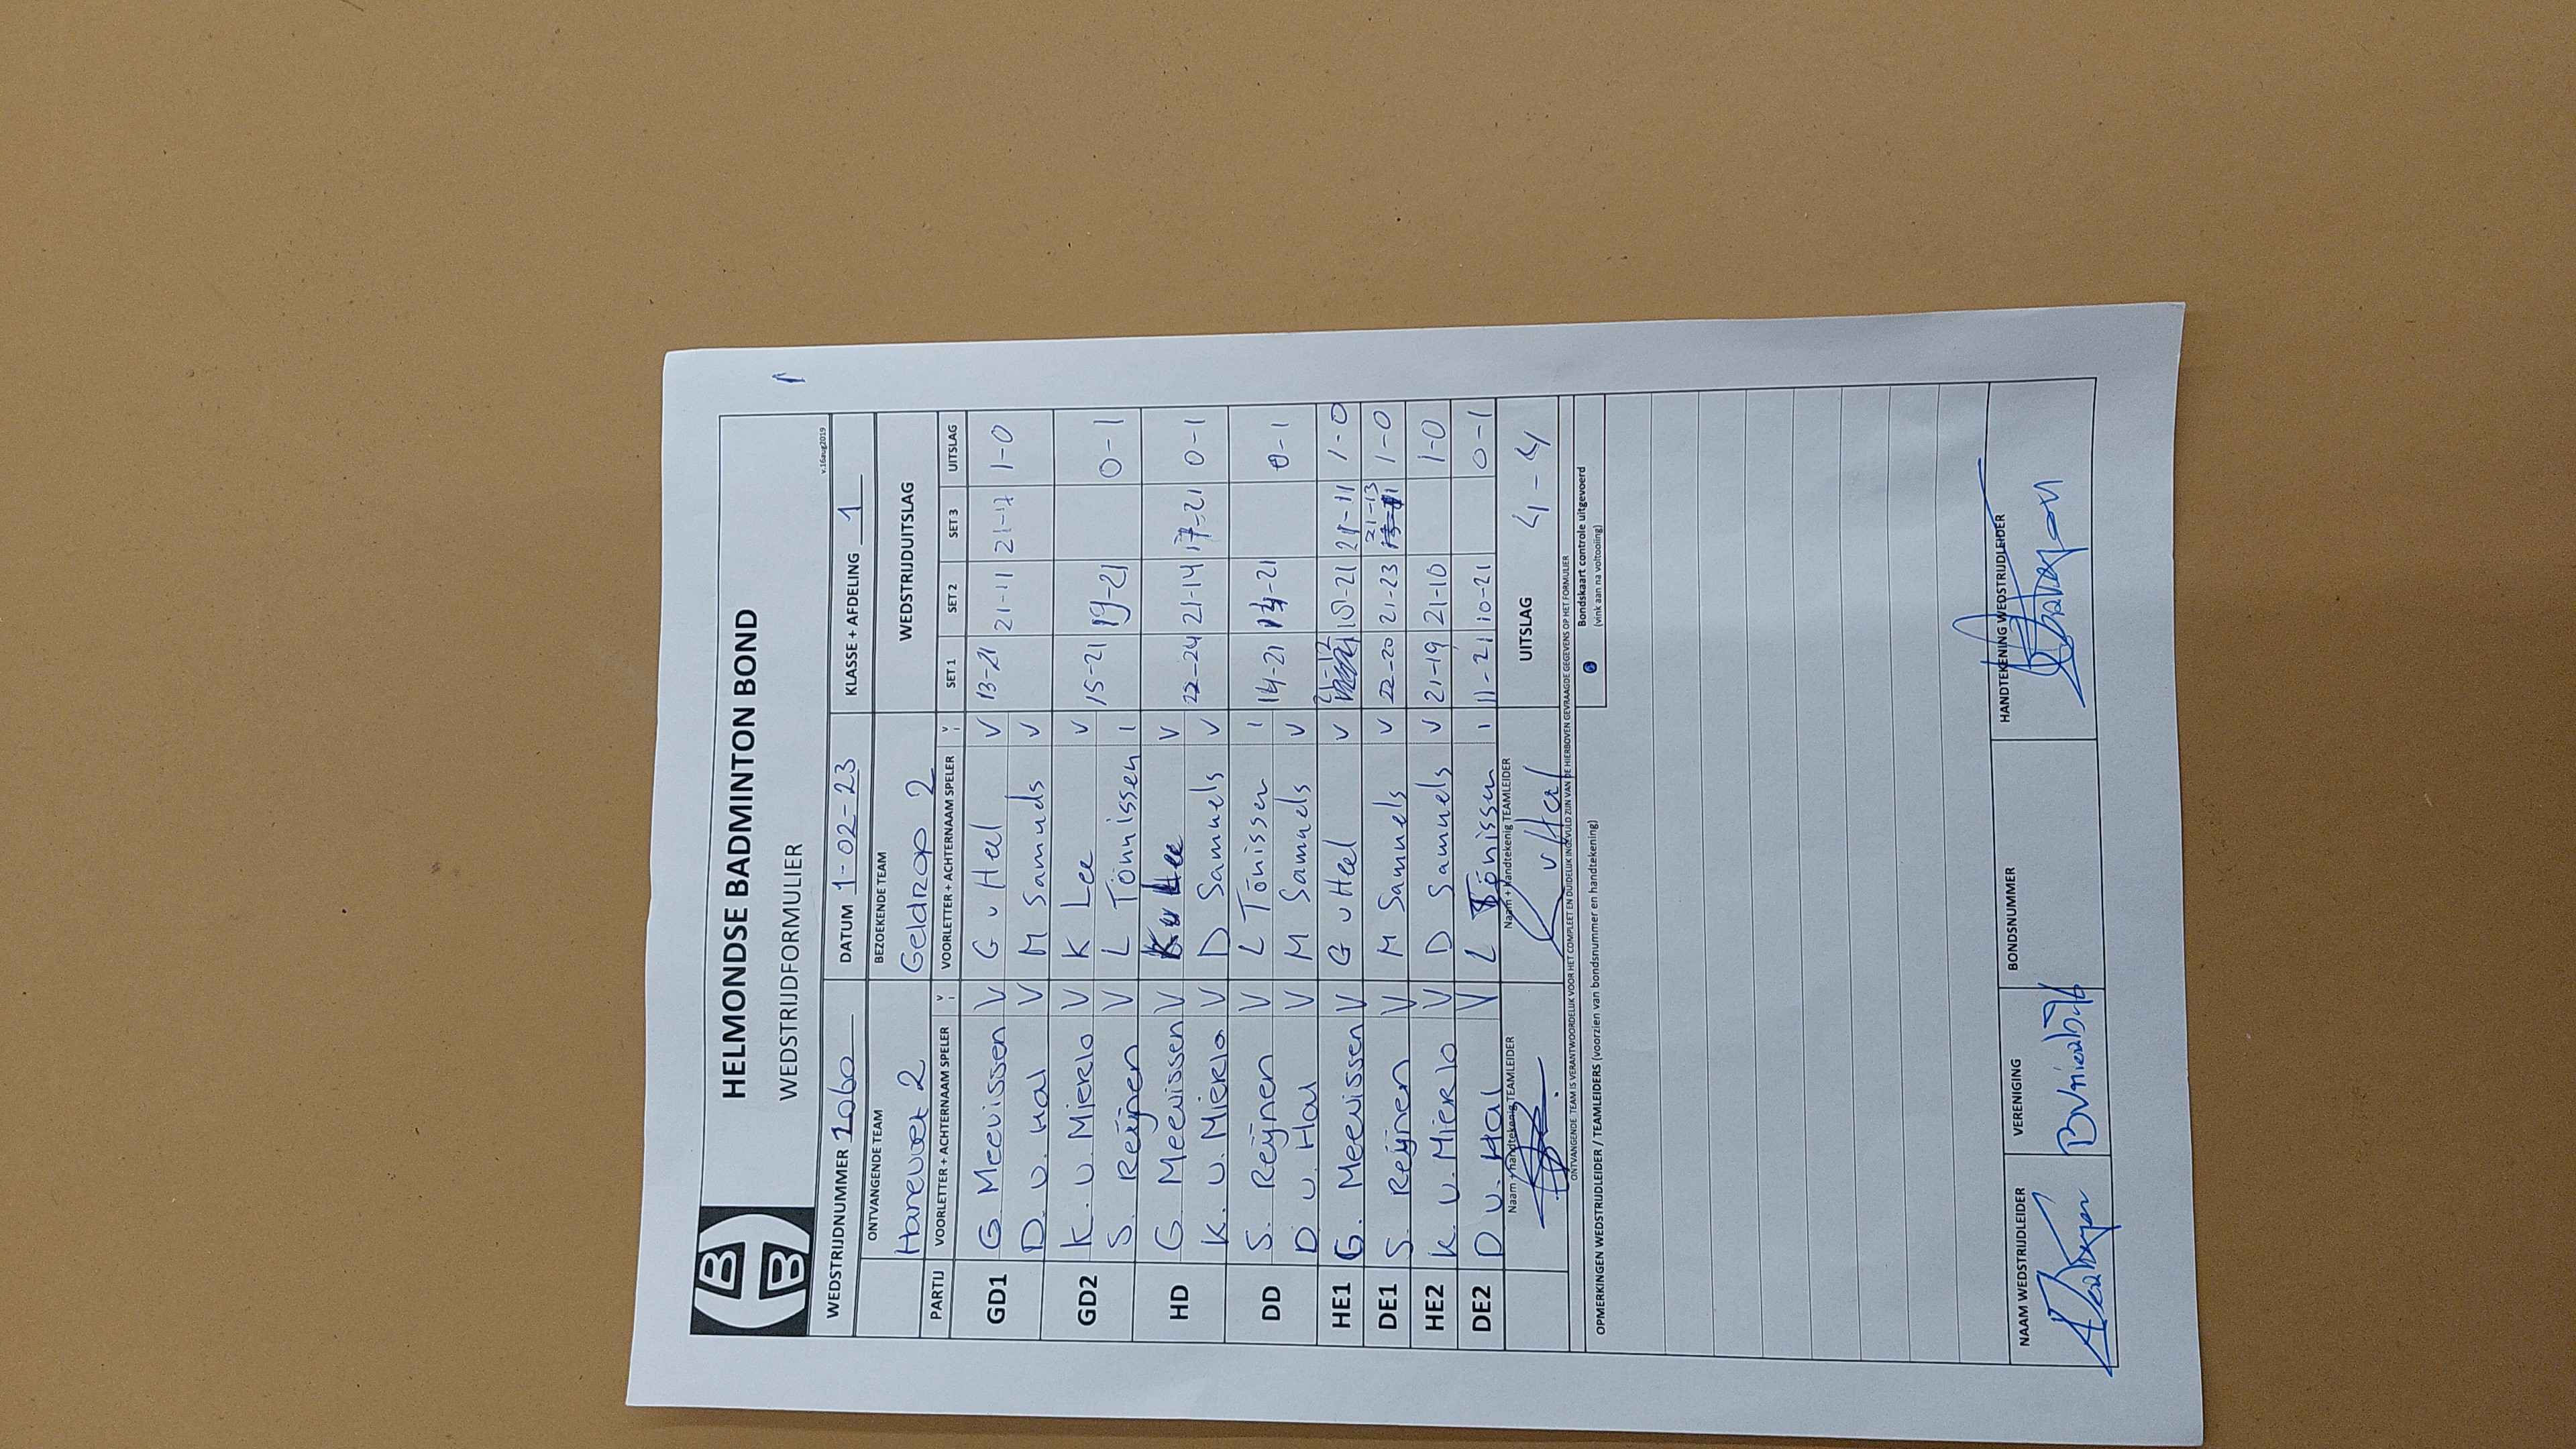 HELMONDSE BADMINTON BOND
WEDSTRIJDFORMULIER
v.16aug2019
WEDSTRIJDNUMMER 1060 DATUM 1-02-23 KLASSE + AFDELING 1
ONTVANGENDE TEAM BEZOEKENDE TEAM WEDSTRIJDUITSLAG
Harrevoet 2 Geldrop 2
PARTIJ VOORLETTER + ACHTERNAAM SPELER V I VOORLETTER + ACHTERNAAM SPELER V I SET 1 SET 2 SET 3 UITSLAG
GD1 G. Meevissen V G v Heel V 13-21 21-11 21-17 1-0
D. v. Hal V M Samuels V
GD2 K. v. Mierlo V K Lee V 15-21 19-21 0-1
S. Reijnen V L Tönnissen I
HD G. Meevissen V K Lee V 22-24 21-14 17-21 0-1
K. v. Mierlo V D Samuels V
DD S. Reijnen V L Tönissen I 14-21 14-21 0-1
D v. Hal V M Samuels V
HE1 G. Meevissen V G v Heel V 21-17 18-21 21-11 1-0
DE1 S. Reijnen V M Samuels V 22-20 21-23 21-13 1-0
HE2 K. v. Mierlo V D Samuels V 21-19 21-10 1-0
DE2 D v. Hal V L Tönissen I 11-21 10-21 0-1
Naam + handtekenig TEAMLEIDER Naam + handtekenig TEAMLEIDER UITSLAG 4-4
ONTVANGENDE TEAM IS VERANTWOORDELIJK VOOR HET COMPLEET EN DUIDELIJK INGEVULD ZIJN VAN DE HIERBOVEN GEVRAAGDE GEGEVENS OP HET FORMULIER
OPMERKINGEN WEDSTRIJDLEIDER / TEAMLEIDERS (voorzien van bondsnummer en handtekening)
Bondskaart controle uitgevoerd
(vink aan na voltooiing)
NAAM WEDSTRIJDLEIDER VERENIGING BONDSNUMMER HANDTEKENING WEDSTRIJDLEIDER